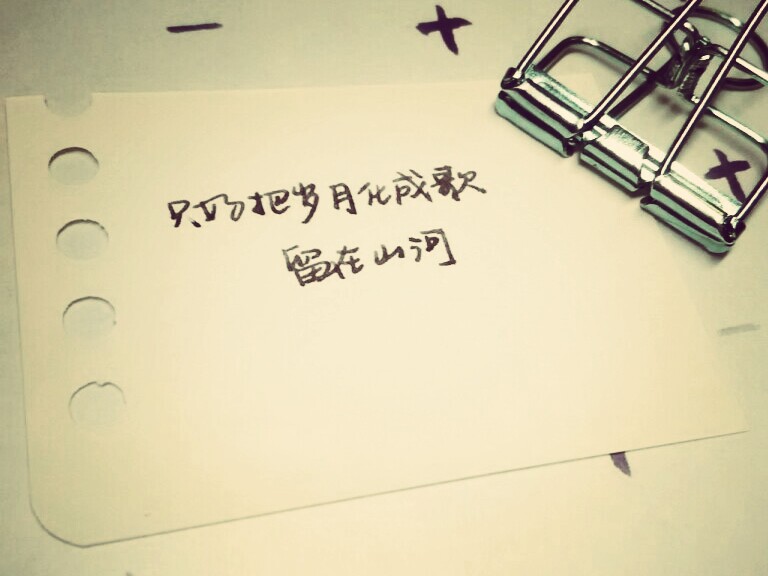 只巧把岁月化成歌
留在山河